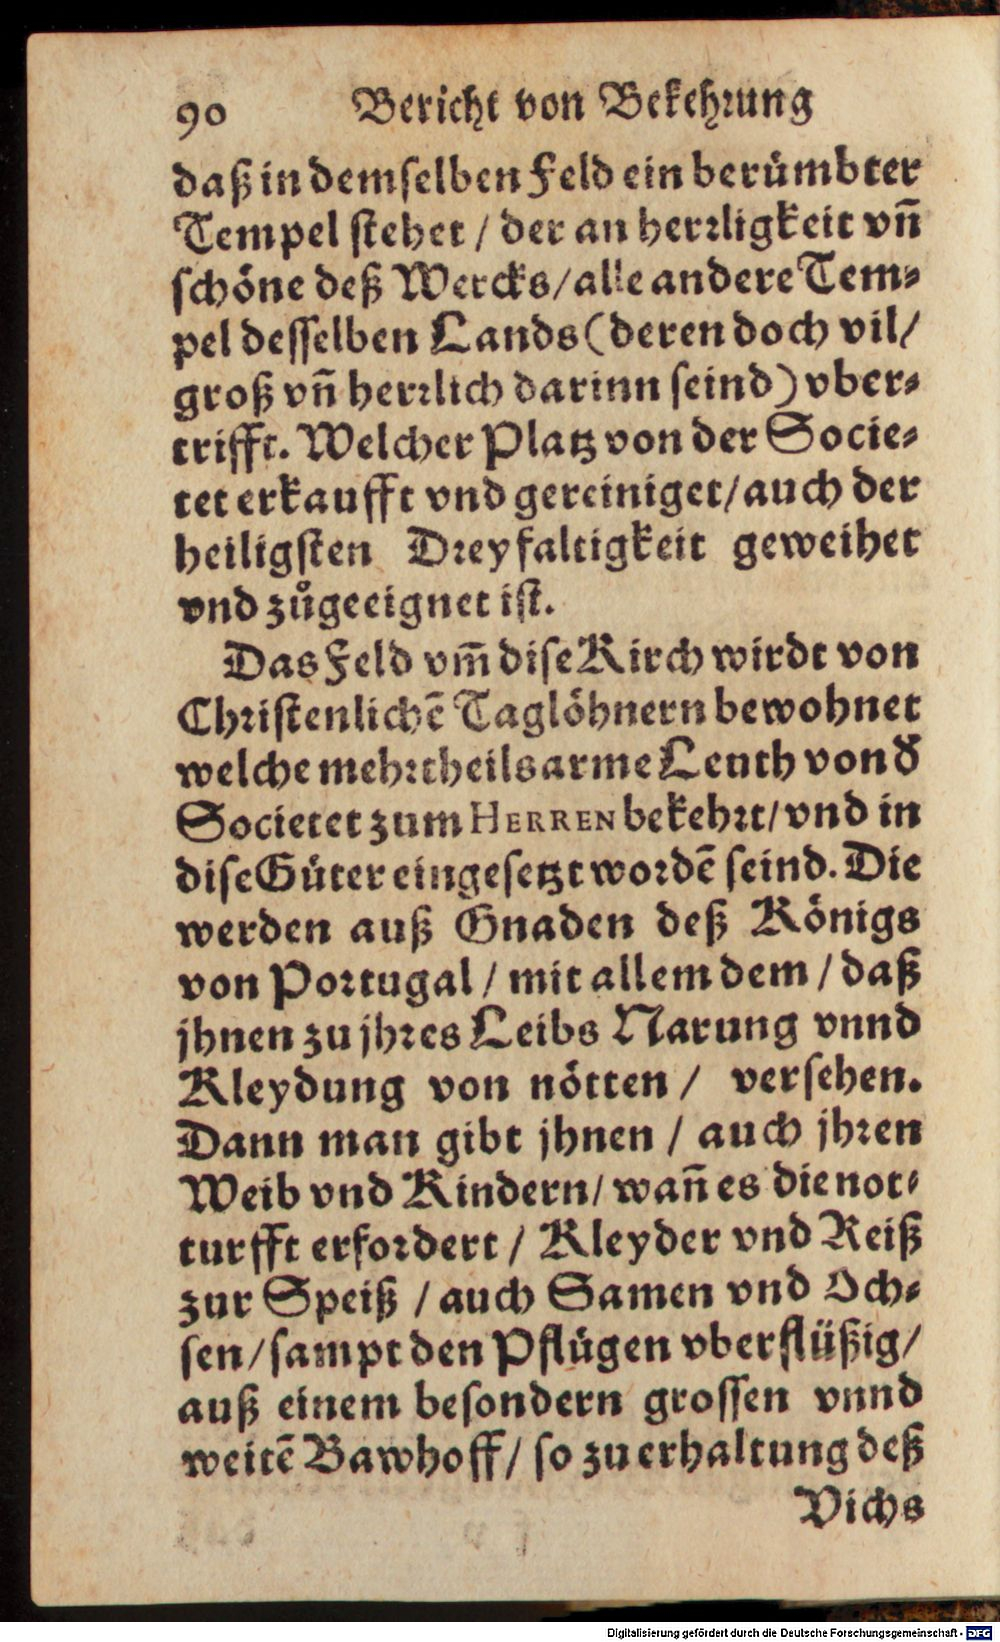 90 Bericht von Bekehꝛung
daß in demselben Feld ein berümbter
Tempel stehet / der an herꝛligkeit vn̄
schöne deß Wercks / alle andere Tem-
pel desselben Lands (deren doch vil /
groß vn̄ herꝛlich darinn seind) vber-
trifft. Welcher Platz von der Socie-
tet erkaufft vnd gereiniget / auch der
heiligsten Dꝛeyfaltigkeit geweihet
vnd zůgeeignet ist.
Das Feld vm̄ dise Kirch wirdt von
Chꝛistenlichē Taglöhnern bewohnet
welche mehꝛtheils arme Leuth von d̄
Societet zum HERREN bekehꝛt / vnd in
dise Güter eingesetzt woꝛdē seind. Die
werden auß Gnaden deß Königs
von Poꝛtugal / mit allem dem / daß
jhnen zu jhꝛes Leibs Narung vnnd
Kleydung von nötten / versehen.
Dann man gibt jhnen / auch jhꝛen
Weib vnd Kindern / wan̄ es die not-
turfft erfoꝛdert / Kleyder vnd Reiß
zur Speiß / auch Samen vnd Och-
sen / sampt den Pflügen vberflüßig /
auß einem besondern grossen vnnd
weitē Bawhoff / so zu erhaltung deß
Vichs
Digitalisierung gefördert durch die Deutsche Forschungsgemeinschaft - DFG